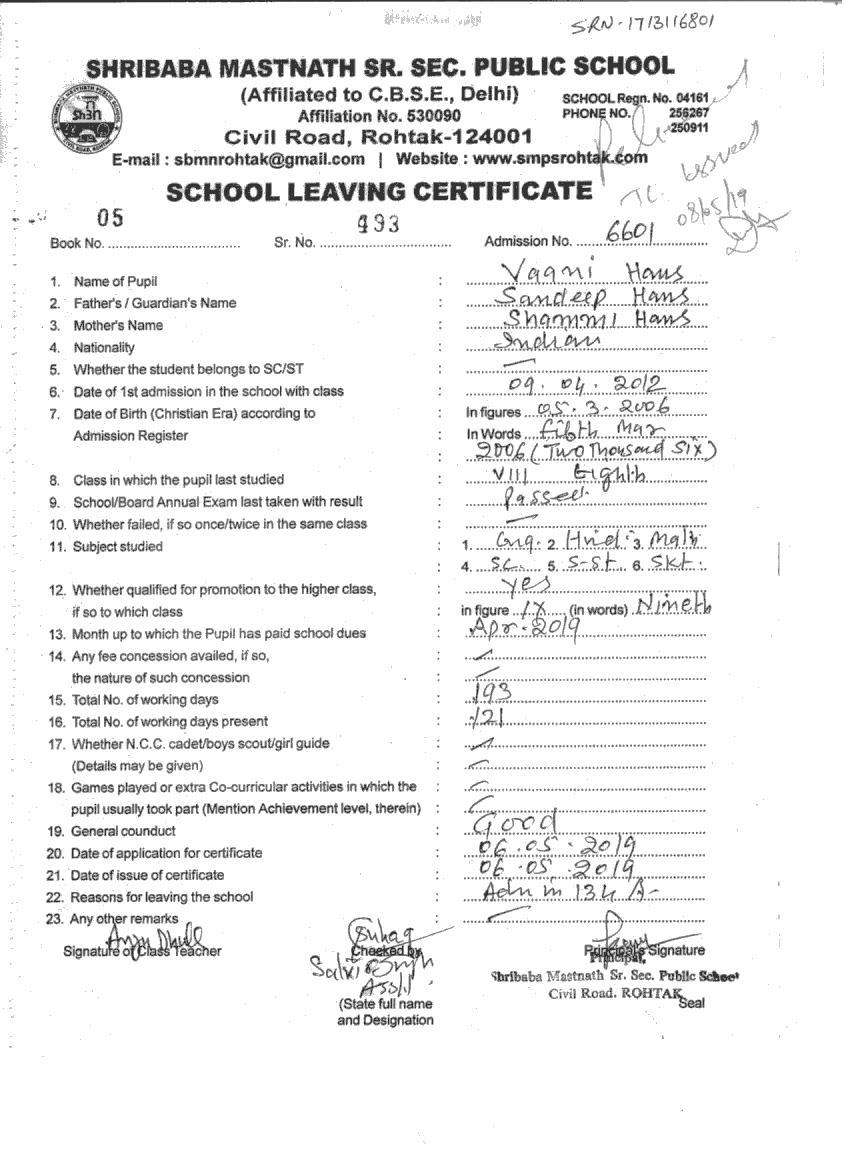 SRN-1713116801
SHRIBABA MASTNATH SR. SEC. PUBLIC SCHOOL
(Affiliated to C.B.S.E., Delhi)
SCHOOL Regn. No. 04161
Affiliation No. 530090
PHONE NO. 256267
250911
Civil Road, Rohtak-124001
E-mail : sbmnrohtak@gmail.com | Website : www.smpsrohtak.com
SCHOOL LEAVING CERTIFICATE
TC issued
08/05/19
Book No. 05 Sr. No. 993 Admission No. 6601
1. Name of Pupil : Vaani Hans
2. Father's / Guardian's Name : Sandeep Hans
3. Mother's Name : Shammi Hans
4. Nationality : Indian
5. Whether the student belongs to SC/ST : —
6. Date of 1st admission in the school with class : 09.04.2012
7. Date of Birth (Christian Era) according to : In figures 05.3.2006
Admission Register : In Words fifth Mar
: 2006 (Two Thousand Six)
8. Class in which the pupil last studied : VIII Eighth
9. School/Board Annual Exam last taken with result : Passed
10. Whether failed, if so once/twice in the same class : —
11. Subject studied : 1. Eng. 2. Hindi 3. Math
: 4. SC. 5. S-St 6. Skt.
12. Whether qualified for promotion to the higher class, : Yes
if so to which class in figure IX (in words) Nineth
13. Month up to which the Pupil has paid school dues : Apr-2019
14. Any fee concession availed, if so, :
the nature of such concession :
15. Total No. of working days : 193
16. Total No. of working days present : 121
17. Whether N.C.C. cadet/boys scout/girl guide :
(Details may be given) :
18. Games played or extra Co-curricular activities in which the :
pupil usually took part (Mention Achievement level, therein) :
19. General counduct : Good
20. Date of application for certificate : 06.05.2019
21. Date of issue of certificate : 06.05.2019
22. Reasons for leaving the school : Adm in 134 A-
23. Any other remarks : —
Signature of Class Teacher
Checked by
Principal's Signature
Principal,
Shribaba Mastnath Sr. Sec. Public School
Civil Road, ROHTAK
Seal
(State full name
and Designation